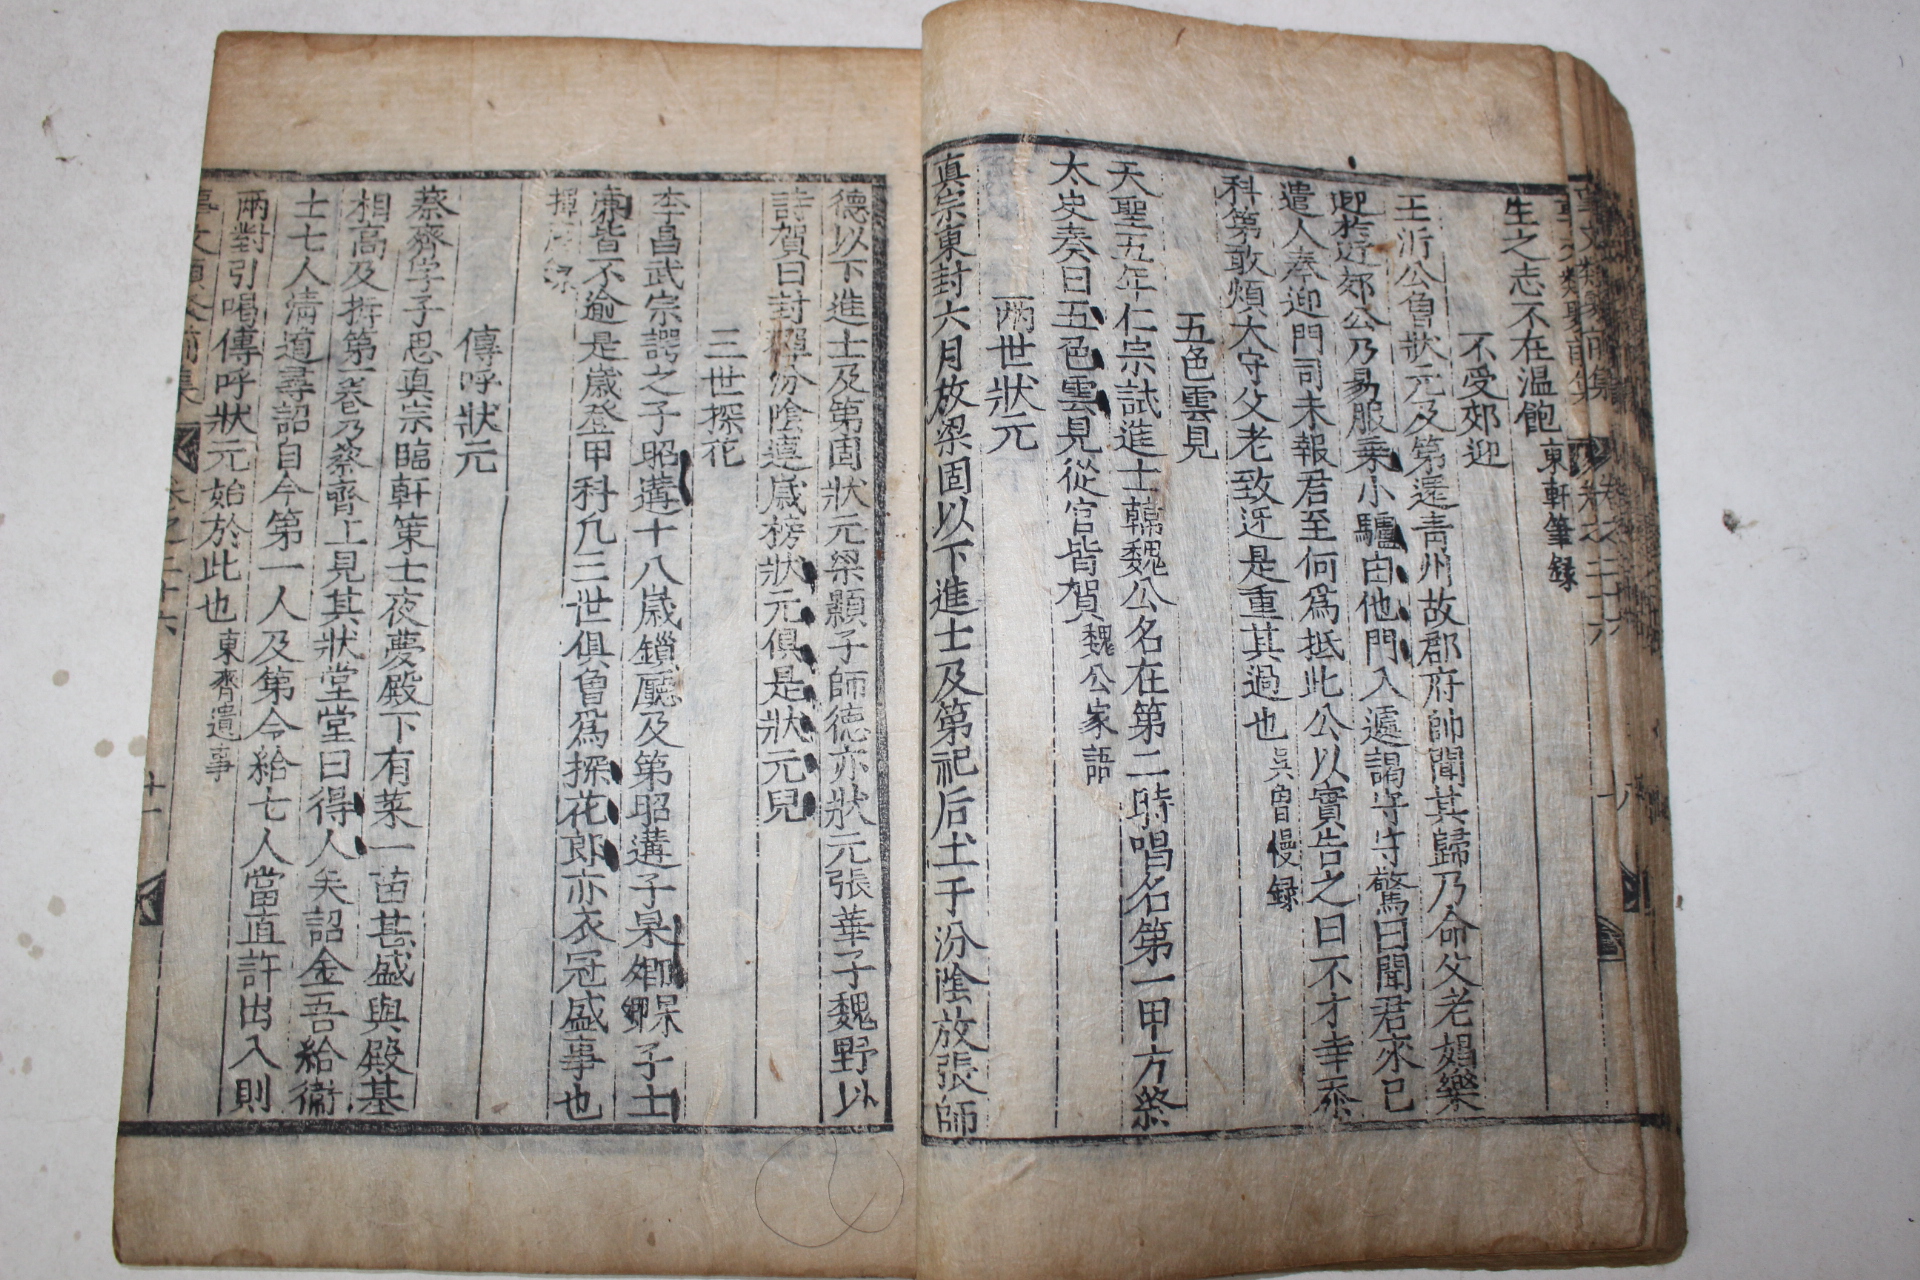 生之志不在温飽東軒筆録
不受郊迎
王沂公曾狀元及第還青州故郡府帥聞其歸乃命父老娼樂
迎於近郊公乃易服乗小驢由他門入遽謁守守驚曰聞君來已
遣人奉迎門司未報君至何爲抵此公以實告之曰不才幸忝
科第敢煩大守父老致迓是重其過也吳曾慢録
五色雲見
天聖五年仁宗試進士韓魏公名在第二時唱名第一甲方終
太史奏曰五色雲見從官皆賀魏公家語
兩世狀元
真宗東封六月放梁固以下進士及第祀后土于汾陰放張師
德以下進士及第固狀元梁顥子師德亦狀元張華子魏野以
詩賀曰封禪汾陰連歲榜狀元俱是狀元兒
三世探花
李昌武宗諤之子昭遘十八歲鎖廳及第昭遘子杲卿杲卿子士
廉皆不逾是歲登甲科凡三世俱曾爲探花郎亦衣冠盛事也
揮麈録
傳呼狀元
蔡齊字子思真宗臨軒策士夜夢殿下有菜一苗甚盛與殿基
相高及拆第一卷乃蔡齊上見其狀堂堂曰得人矣詔金吾給衛
士七人清道尋詔自今第一人及第令給七人當直許出入則
兩對引喝傳呼狀元始於此也東齊遺事
事文類聚前集 卷之二十六 十一